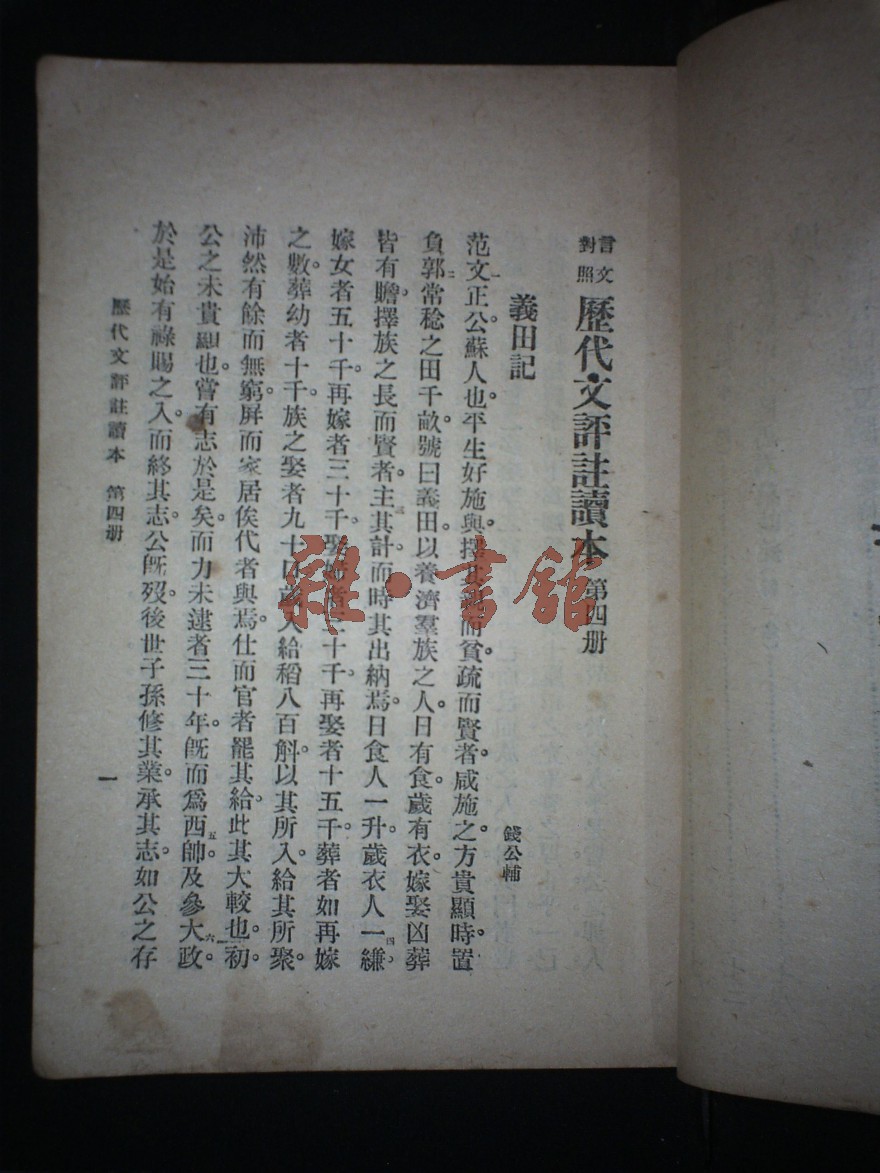 言文對照 歷代文評註讀本 第四册
義田記
錢公輔
范文正公蘇人也。平生好施與擇其親而貧疏而賢者。咸施之。方貴顯時置
負郭常稔之田千畝。號曰義田。以養濟羣族之人。日有食。歲有衣。嫁娶凶葬
皆有贍。擇族之長而賢者。主其計。而時其出納焉。日食人一升。歲衣人一縑
嫁女者五十千。再嫁者三十千。娶婦者三十千。再娶者十五千。葬者如再嫁
之數。葬幼者十千。族之娶者九十口。歲入給稻八百斛。以其所入給其所聚。
沛然有餘而無窮。屏而家居俟代者與焉。仕而官者罷其給。此其大較也。初
公之未貴顯也。嘗有志於是矣。而力未逮者三十年。旣而爲西帥。及參大政。
於是始有祿賜之入。而終其志。公旣歿。後世子孫修其業。承其志。如公之存
歷代文評註讀本 第四册
一
雜·書館